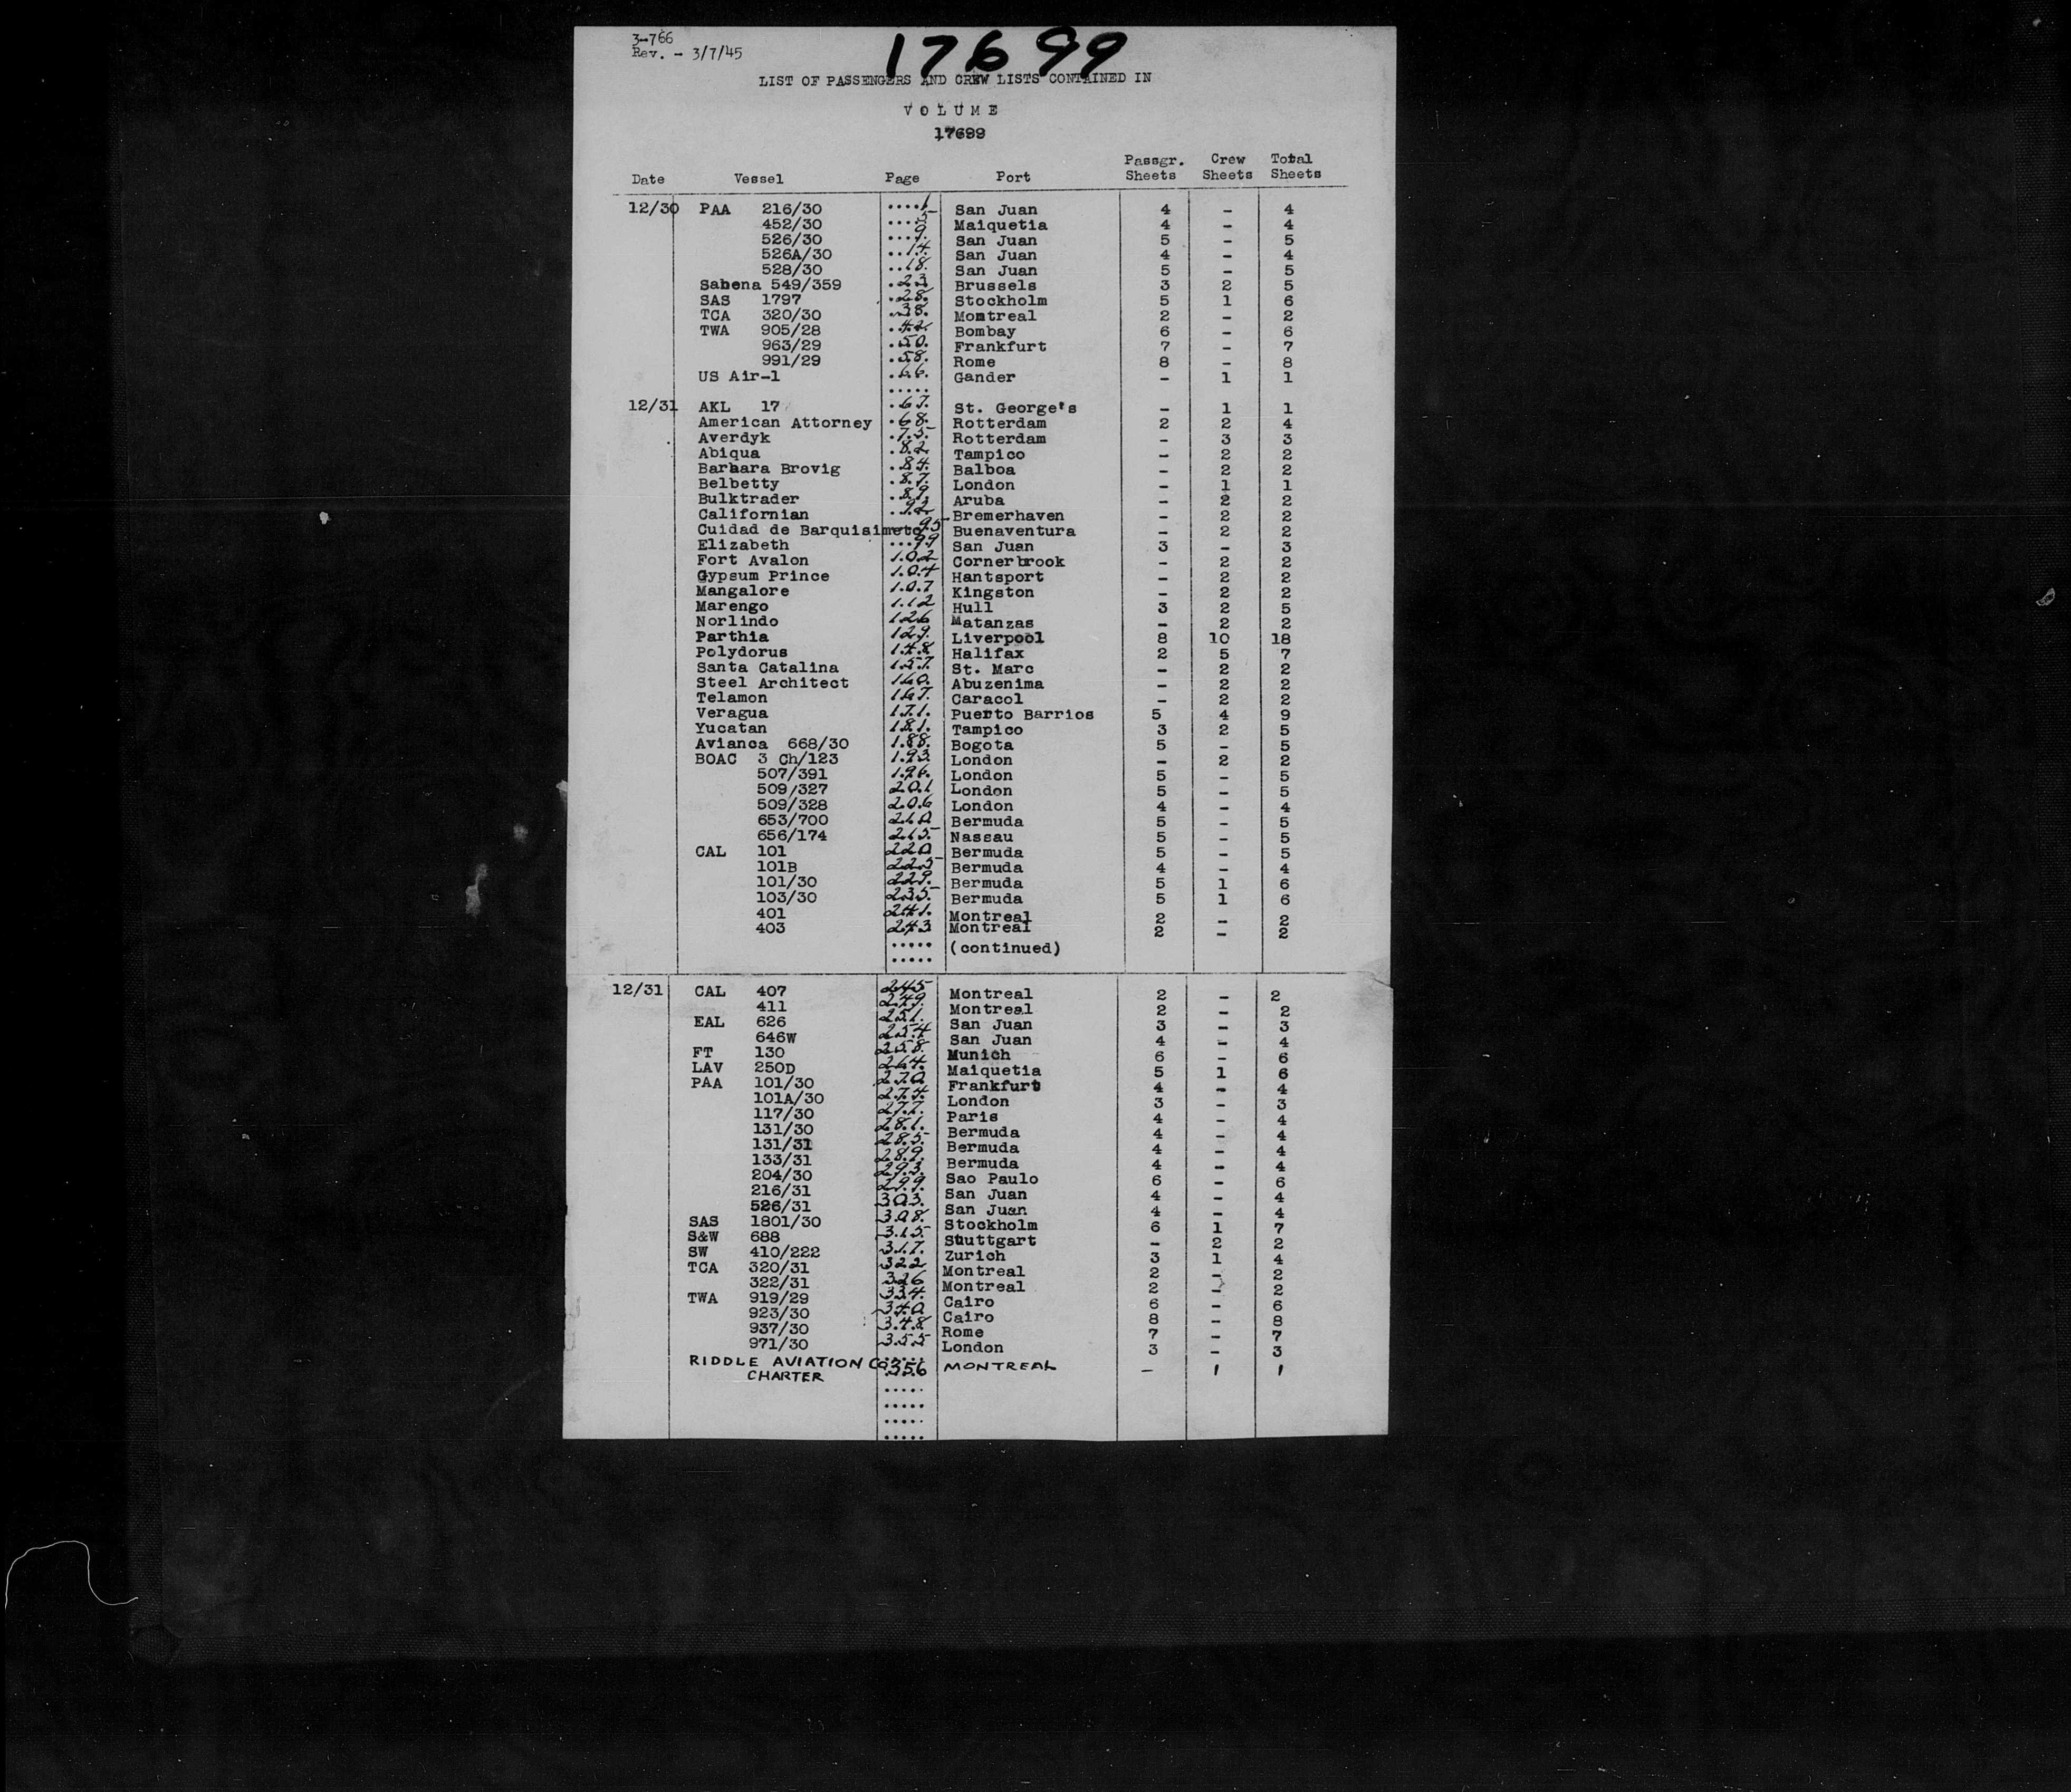 3-766
Rev. - 3/7/45
17699
LIST OF PASSENGERS AND CREW LISTS CONTAINED IN
VOLUME
17699
Date Vessel Page Port Passgr. Sheets Crew Sheets Total Sheets
12/30 PAA 216/30 ....1 San Juan 4 - 4
452/30 ....5 Maiquetia 4 - 4
526/30 ....9. San Juan 5 - 5
526A/30 ...14. San Juan 4 - 4
528/30 ..18. San Juan 5 - 5
Sabena 549/359 .23. Brussels 3 2 5
SAS 1797 .28. Stockholm 5 1 6
TCA 320/30 .38. Montreal 2 - 2
TWA 905/28 .42. Bombay 6 - 6
963/29 .50. Frankfurt 7 - 7
991/29 .58. Rome 8 - 8
US Air-1 .66. Gander - 1 1
.....
12/31 AKL 17 .67. St. George's - 1 1
American Attorney .68. Rotterdam 2 2 4
Averdyk .75. Rotterdam - 3 3
Abiqua .82. Tampico - 2 2
Barbara Brovig .84. Balboa - 2 2
Belbetty .87. London - 1 1
Bulktrader .89. Aruba - 2 2
Californian .92. Bremerhaven - 2 2
Cuidad de Barquisimeto 95 Buenaventura - 2 2
Elizabeth ...99 San Juan 3 - 3
Fort Avalon 102 Cornerbrook - 2 2
Gypsum Prince 104 Hantsport - 2 2
Mangalore 107 Kingston - 2 2
Marengo 112 Hull 3 2 5
Norlindo 126 Matanzas - 2 2
Parthia 129. Liverpool 8 10 18
Polydorus 148 Halifax 2 5 7
Santa Catalina 157. St. Marc - 2 2
Steel Architect 160. Abuzenima - 2 2
Telamon 167. Caracol - 2 2
Veragua 171. Puerto Barrios 5 4 9
Yucatan 181. Tampico 3 2 5
Avianca 668/30 188. Bogota 5 - 5
BOAC 3 Ch/123 193. London - 2 2
507/391 196. London 5 - 5
509/327 201 London 5 - 5
509/328 206 London 4 - 4
653/700 210 Bermuda 5 - 5
656/174 215. Nassau 5 - 5
CAL 101 220 Bermuda 5 - 5
101B 225 Bermuda 4 - 4
101/30 229. Bermuda 5 1 6
103/30 235. Bermuda 5 1 6
401 241. Montreal 2 - 2
403 243 Montreal 2 - 2
..... (continued)
.....
12/31 CAL 407 245 Montreal 2 - 2
411 249. Montreal 2 - 2
EAL 626 251. San Juan 3 - 3
646W 254 San Juan 4 - 4
FT 130 258. Munich 6 - 6
LAV 250D 264. Maiquetia 5 1 6
PAA 101/30 270 Frankfurt 4 - 4
101A/30 274. London 3 - 3
117/30 277. Paris 4 - 4
131/30 281. Bermuda 4 - 4
131/31 285. Bermuda 4 - 4
133/31 289. Bermuda 4 - 4
204/30 293. Sao Paulo 6 - 6
216/31 299. San Juan 4 - 4
526/31 303. San Juan 4 - 4
SAS 1801/30 308. Stockholm 6 1 7
S&W 688 315. Stuttgart - 2 2
SW 410/222 317. Zurich 3 1 4
TCA 320/31 322 Montreal 2 - 2
322/31 326 Montreal 2 - 2
TWA 919/29 334. Cairo 6 - 6
923/30 340 Cairo 8 - 8
937/30 348 Rome 7 - 7
971/30 355 London 3 - 3
RIDDLE AVIATION CO 356 MONTREAL - 1 1
CHARTER
.....
.....
.....
.....